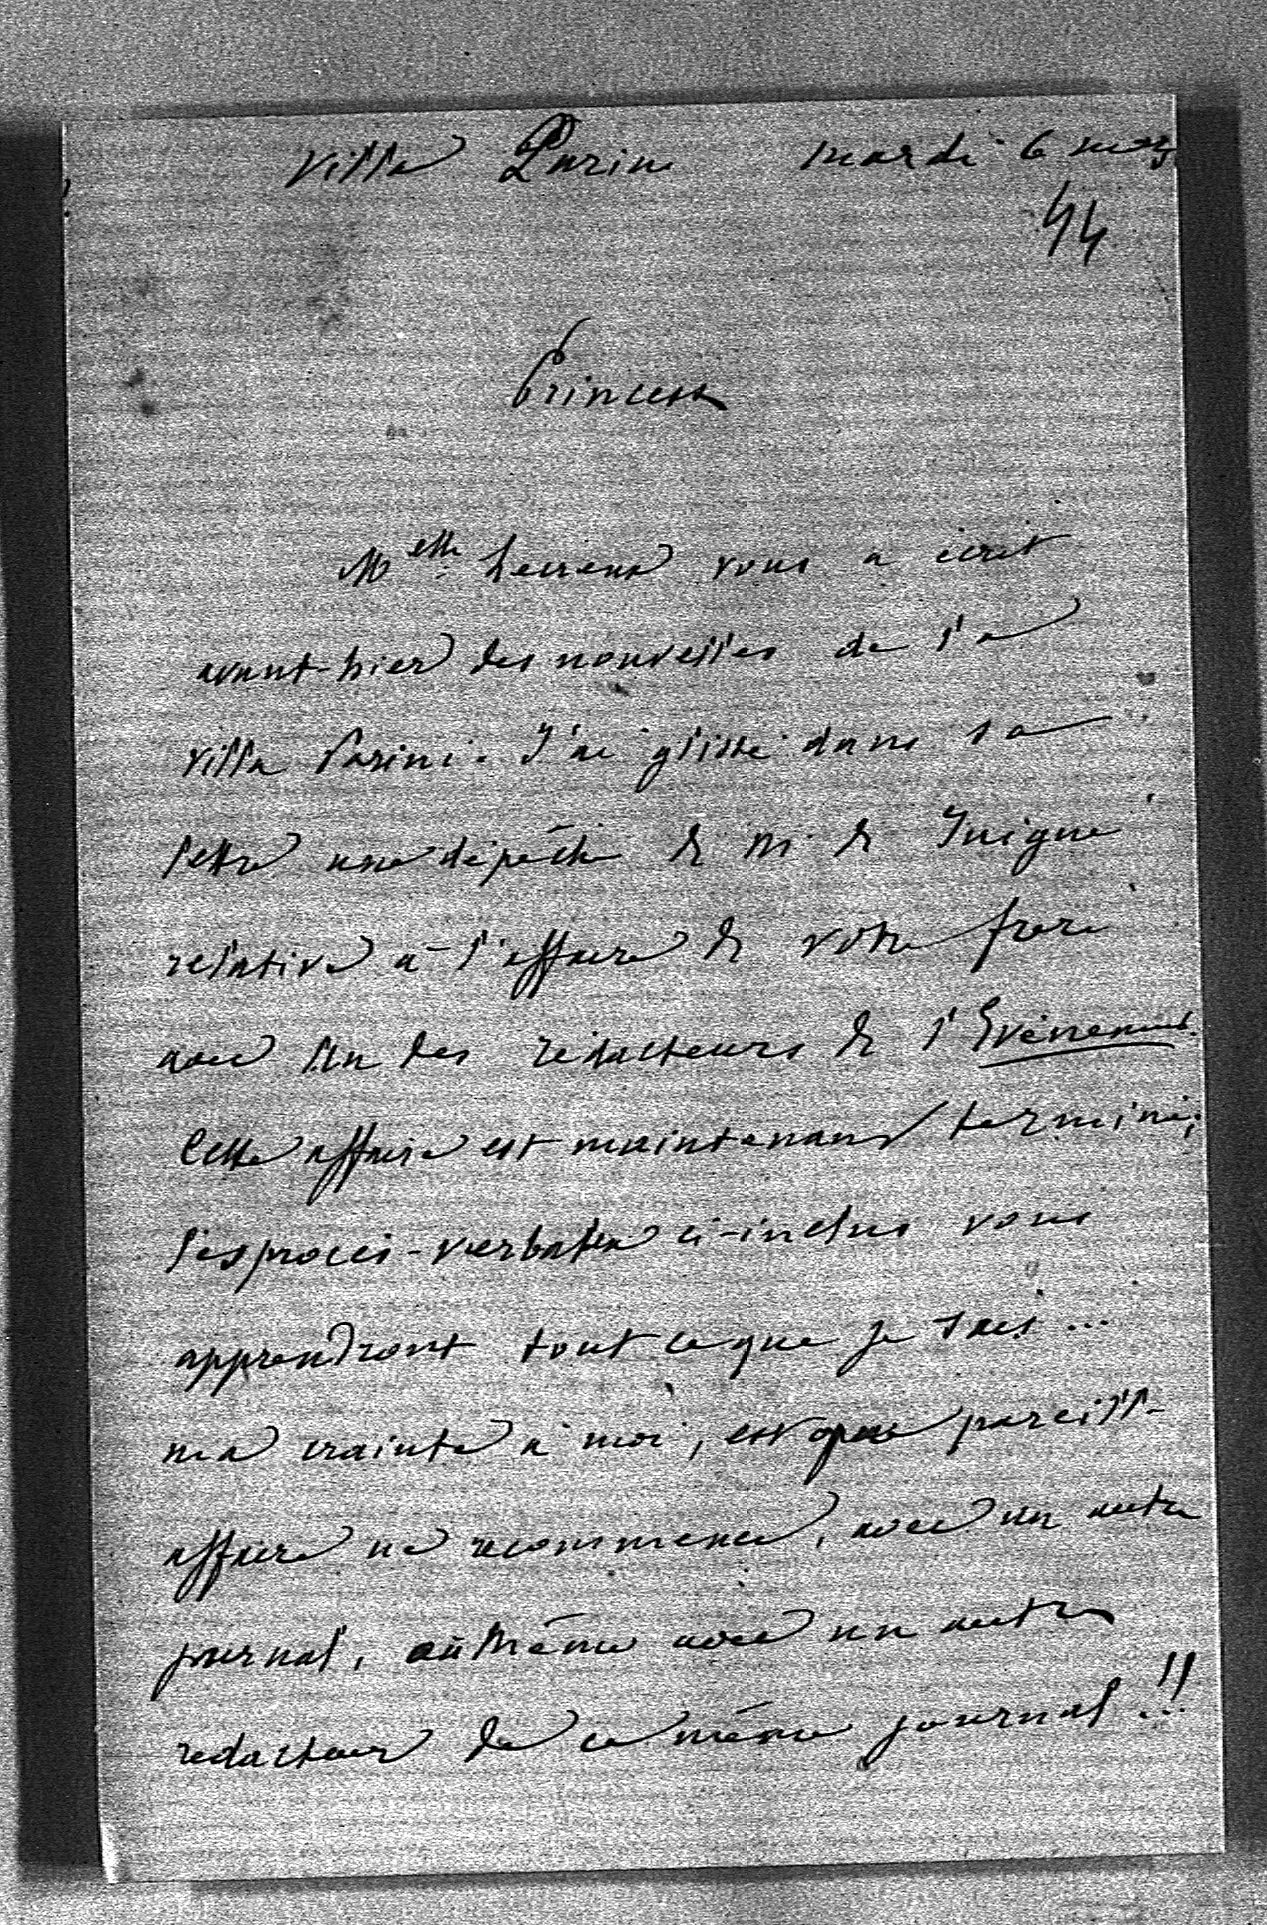 Villa Parini mardi 6 mars
44
Princesse
Melle vous a écrit
avant-hier des nouvelles de la
villa Parini. J'ai glissé dans sa
lettre une dépêche de M. de Juigné
relative à l'affaire de votre frère
avec l'un des rédacteurs de l'Evènement.
Cette affaire est maintenant terminée;
les procès-verbaux ci-inclus vous
apprendront tout ce que je sais...
ma crainte à moi, est que pareille
affaire ne recommence, avec un autre
journal, ou même avec un autre
rédacteur de ce même journal!!